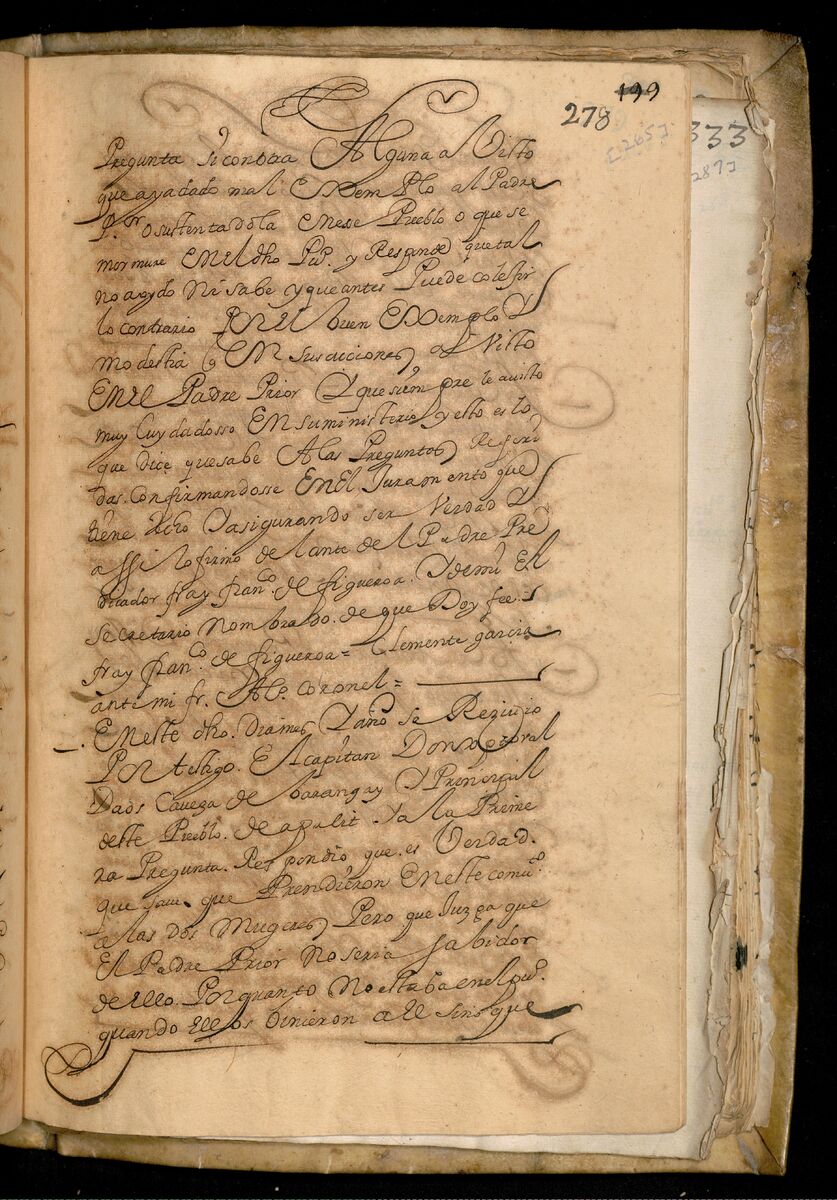 199
278
[265]
333
287]
Pregunta si contra Alguna a Visto
que aya dado mal Exemplo al Padre
P.or o sustentadola en ese Pueblo o que se
mormure En el dho Pu.o y Responde que tal
no a oydo Ni sabe y que antes Puede colegir
lo contrario Por El buen Exemplo Y
modestia q En sus acciones a Visto
En El Padre Prior Y que siempre le a visto
muy Cuydadosso En su ministerio y esto es lo
que Dice que sabe A las Preguntas Referi
das. Confirmandosse En El Juramento que
tiene dicho Y asigurando ser Verdad Y
assi lo firmo delante del Padre Pre
dicador fray fran.co de figueroa. Y de mi El
secretario Nombrado. de que Doy fee.
fray fran.co de figueroa = Clemente garcia
ante mi fr. Al.o Coronel =
En este dho. Dia mes Y año se Reziuio
Por testigo. El capitan Don
Daos Caveza de barangay Y Principal
deste Pueblo. de apalit. Y a la Prime
ra Pregunta. Respondio que. es Verdad.
que saue. que Prendieron En este comu.to
a las dos Mugeres Pero que Juzga que
El Padre Prior No seria sabidor
de Ello. Por quanto No estaba en el pu.o
quando Ellos Vinieron a El sino que